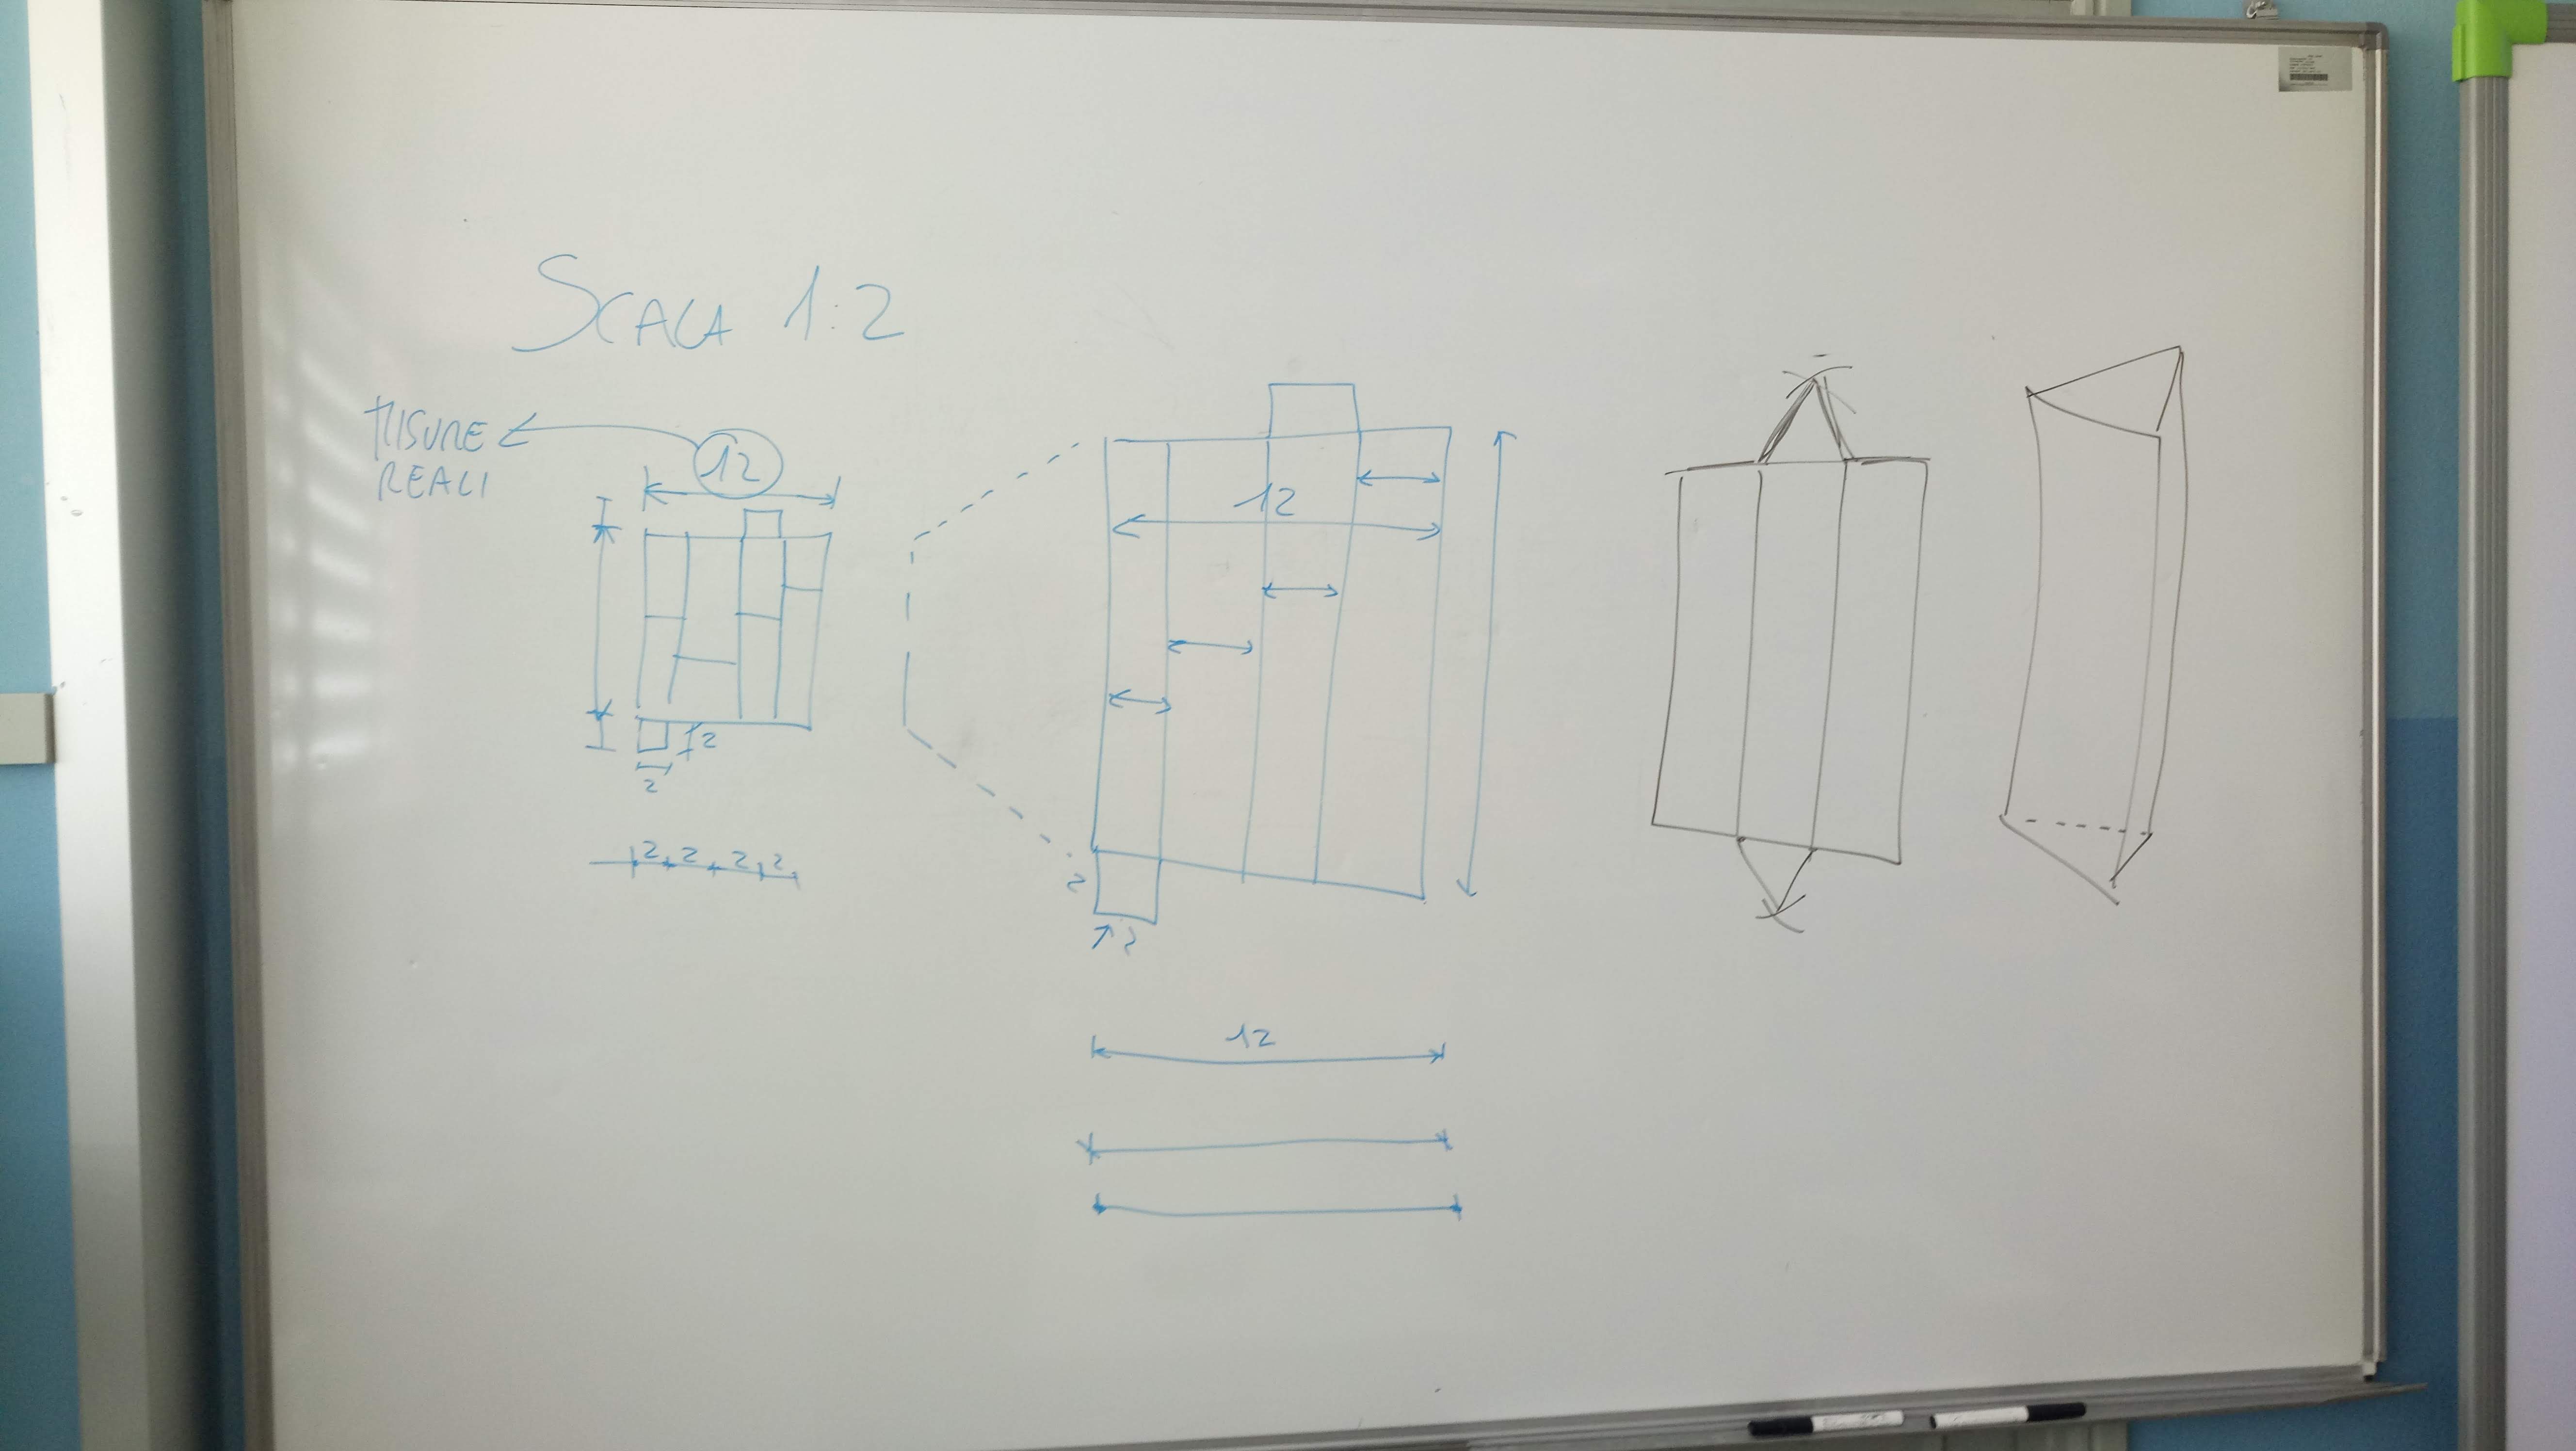 SCALA 1:2
MISURE
REALI
12
2
2
2 2 2 2
12
2
2
12